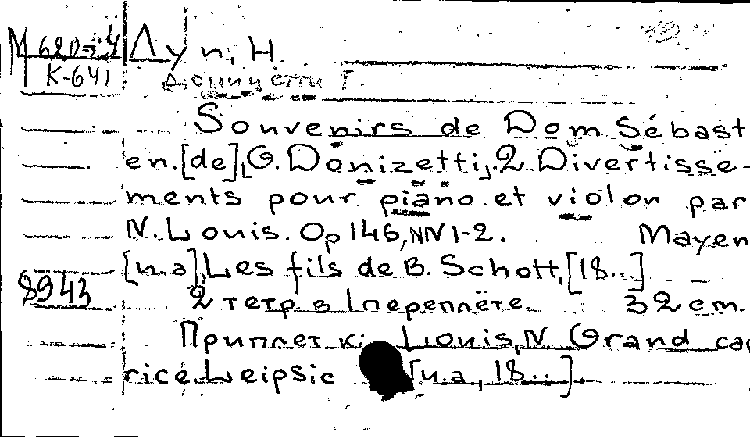 М 620-4 Луи, Н.
К-641 Доницетти Г.
Souvenirs de Dom Sébast
en.[de],G.Donizetti,.2 Divertisse-
ments pour piano et violon par
N.Louis. Op 146, NN 1-2. Mayen
[u.a],Les fils de B. Schott,[18..]
8943 2 тетр в 1 переплёте. 32 cm.
Приплет к: Louis, N Grand cap
rice. Leipsic [u.a., 18..].